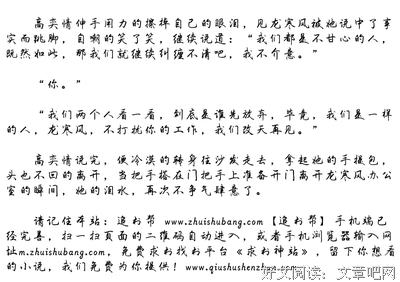 高奕情伸手用力的擦掉自己的眼泪，见龙寒风被她说中了事
实而跳脚，自嘲的笑了笑，继续说道：“我们都是不甘心的人，
既然如此，那我们就继续纠缠不清吧，我不介意。”
“你。”
“我们两个人看一看，到底是谁先放弃，毕竟，我们是一样
的人，龙寒风，不打扰你的工作，我们改天再见。”
高奕情说完，便冷漠的转身往沙发走去，拿起她的手提包，
头也不回的离开，当把手搭在门把手上准备开门离开龙寒风办公
室的瞬间，她的泪水，再次不争气肆意了。
请记住本站：追书帮 www.zhuishubang.com【追书帮】手机端已
经完善，扫一扫页面的二维码自动进入，或者手机浏览器输入网
址m.zhuishubang.com，免费求书找书平台《求书神站》，留下你想看
的小说，我们免费为你提供！www.qiushushenzhan.com
好文阅读：文章吧网